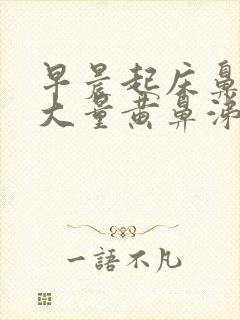 早晨起床鼻
大量黄鼻涕
一語不凡